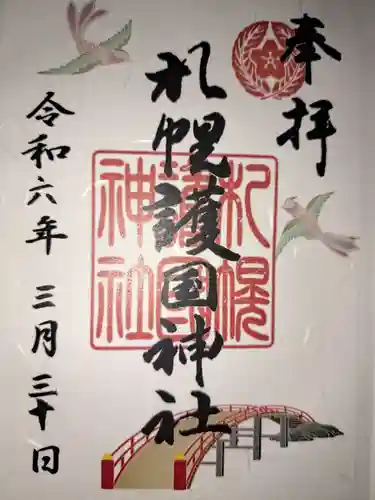 奉拝
札幌護国神社
札幌
護国
神社
令和六年 三月三十日